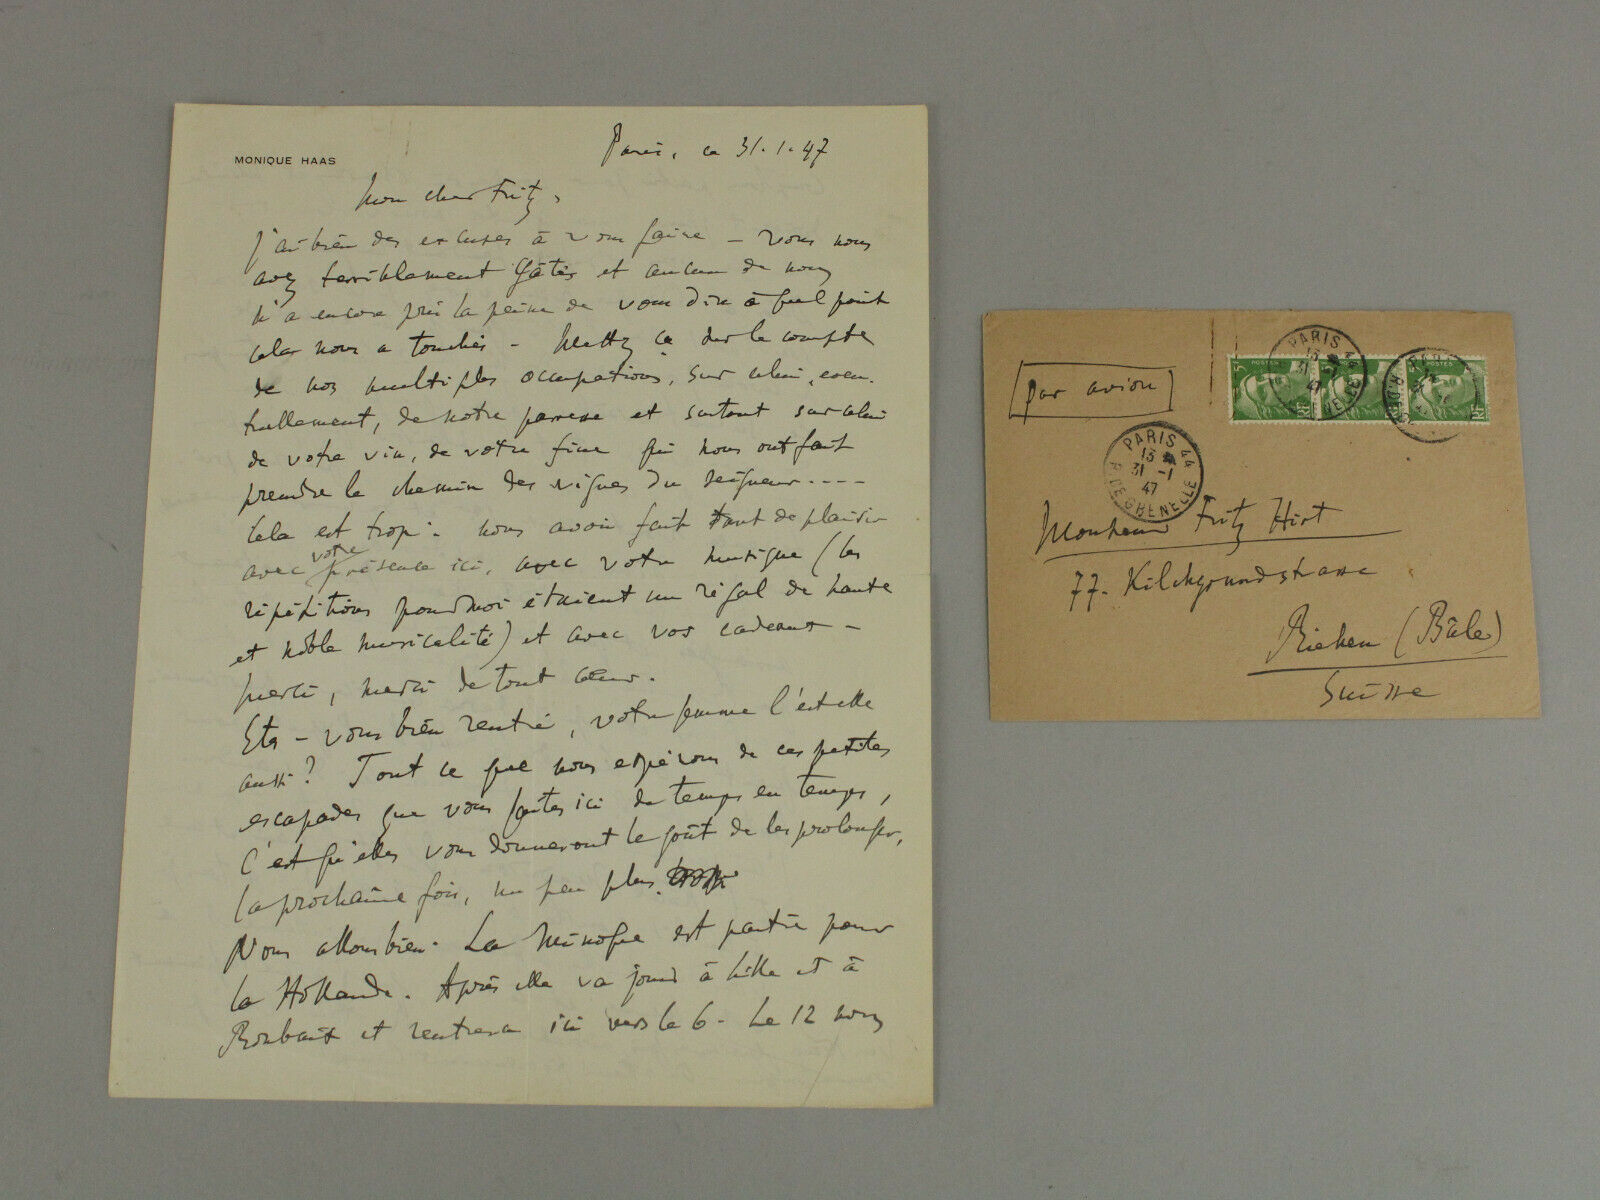 MONIQUE HAAS
Paris, ce 31.1.47
Mon cher Fritz,
J'ai bien des excuses à vous faire – Vous nous
avez terriblement gâtés et aucun de nous
n'a encore pris la peine de vous dire à quel point
cela nous a touchés – Mettez ça sur le compte
de nos multiples occupations, sur celui, éven-
tuellement, de notre paresse et surtout sur celui
de votre vin, de votre fine qui nous ont fait
prendre le chemin des vignes du Seigneur....
Cela est trop: nous avoir fait tant de plaisir
avec votre présence ici, avec votre musique (les
répétitions pour moi étaient un régal de haute
et noble musicalité) et avec vos cadeaux –
merci, merci de tout cœur.
Etes-vous bien rentré, votre femme l'est elle
aussi? Tout ce que nous espérons de ces petites
escapades que vous faites ici de temps en temps,
c'est qu'elles vous donneront le goût de les prolonger,
la prochaine fois, un peu plus
Nous allons bien. La Minoque est partie pour
la Hollande. Après elle va jouer à Lille et à
Roubaix et rentrera ici vers le 6 – Le 12 nous
Par avion
PARIS 44
13
31 -1
47
R. DE GRENELLE
POSTES
RF
Monsieur Fritz Hirt
77. Kilchgrundstrasse
Riehen (Bâle)
Suisse